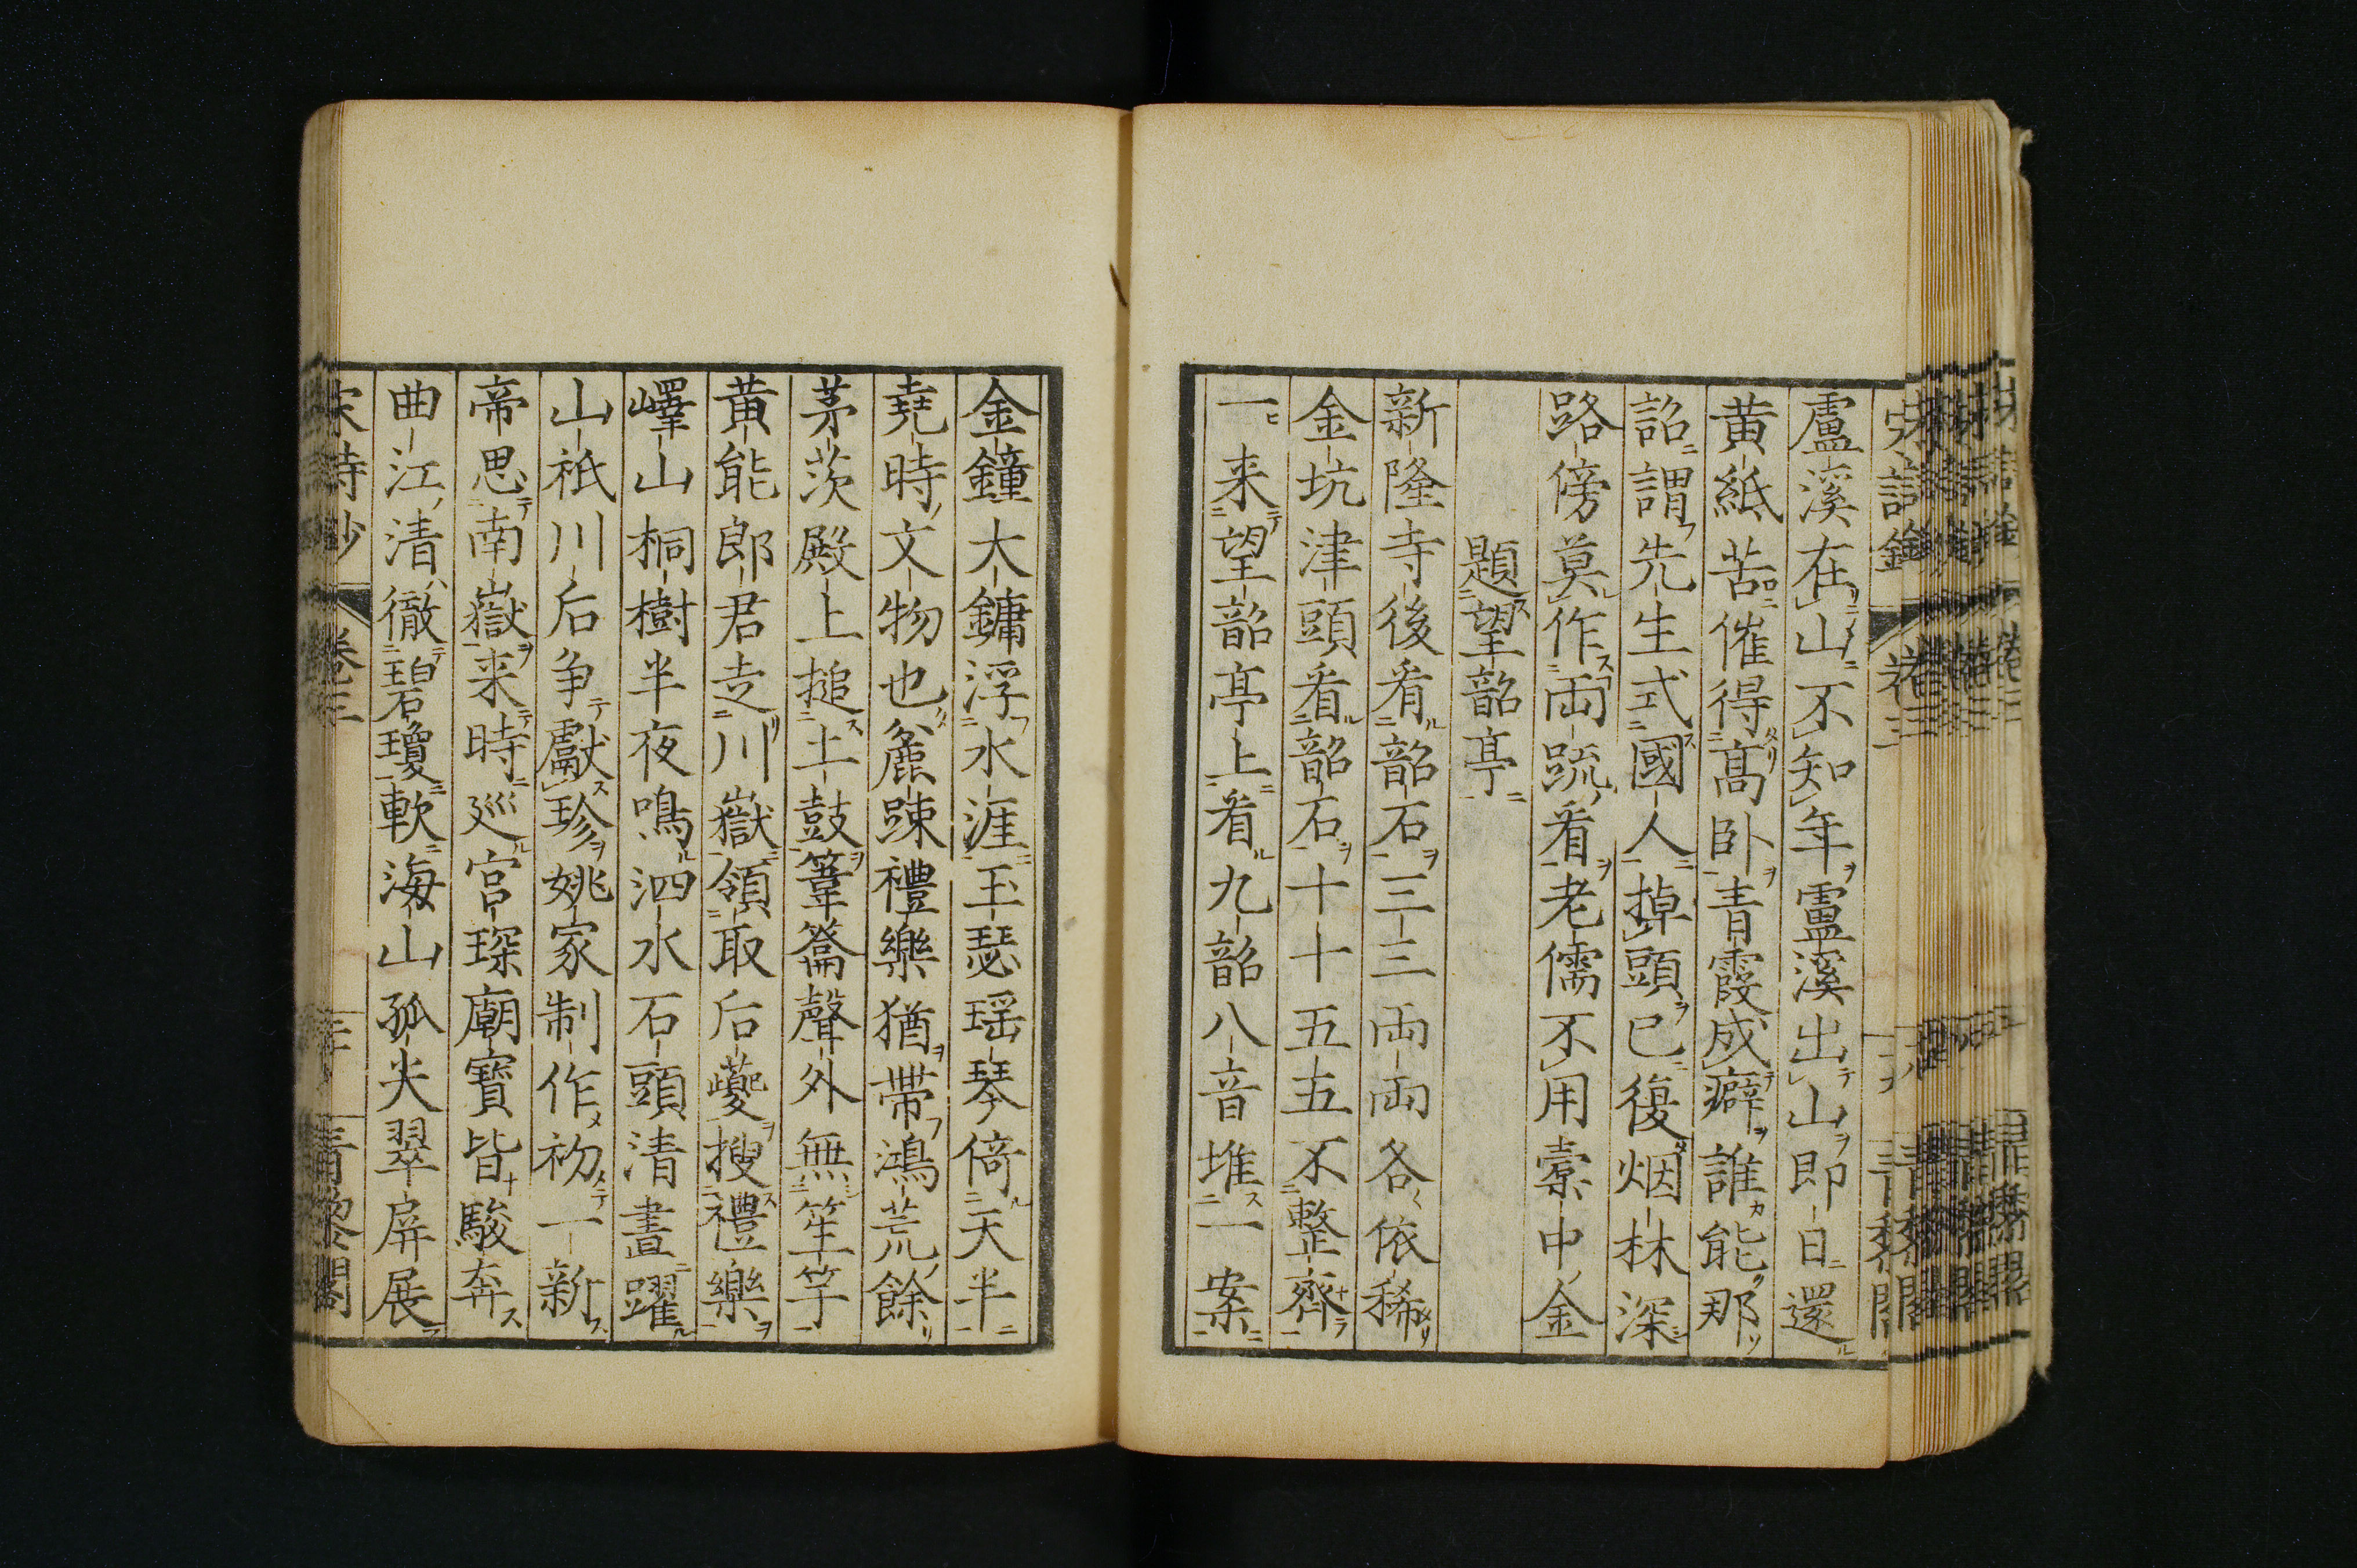 盧溪在山不知年盧溪出山即日還
黄紙苦催得髙卧青霞成癖誰能那
詔謂先生式國人掉頭已復烟林深
路傍莫作兩䟽看老儒不用橐中金
題望韶亭
新隆寺後看韶石三三兩兩各依稀
金坑津頭看韶石十十五五不整齊
一来望韶亭上看九韶八音堆一案
金鐘大鏞浮水涯玉瑟瑶琴倚天半
堯時文物也麄踈禮樂猶帶鴻荒餘
茅茨殿上搥土鼓葦籥聲外無笙竽
黄能郎君走川嶽領取后夔搜禮樂
嶧山桐樹半夜鳴泗水石頭清晝躍
山祇川后争獻珍姚家制作初一新
帝思南嶽来時巡宫琛廟寶皆駿奔
曲江清徹碧瓊軟海山孤尖翠屏展
宋詩鈔 卷三 青藜閣